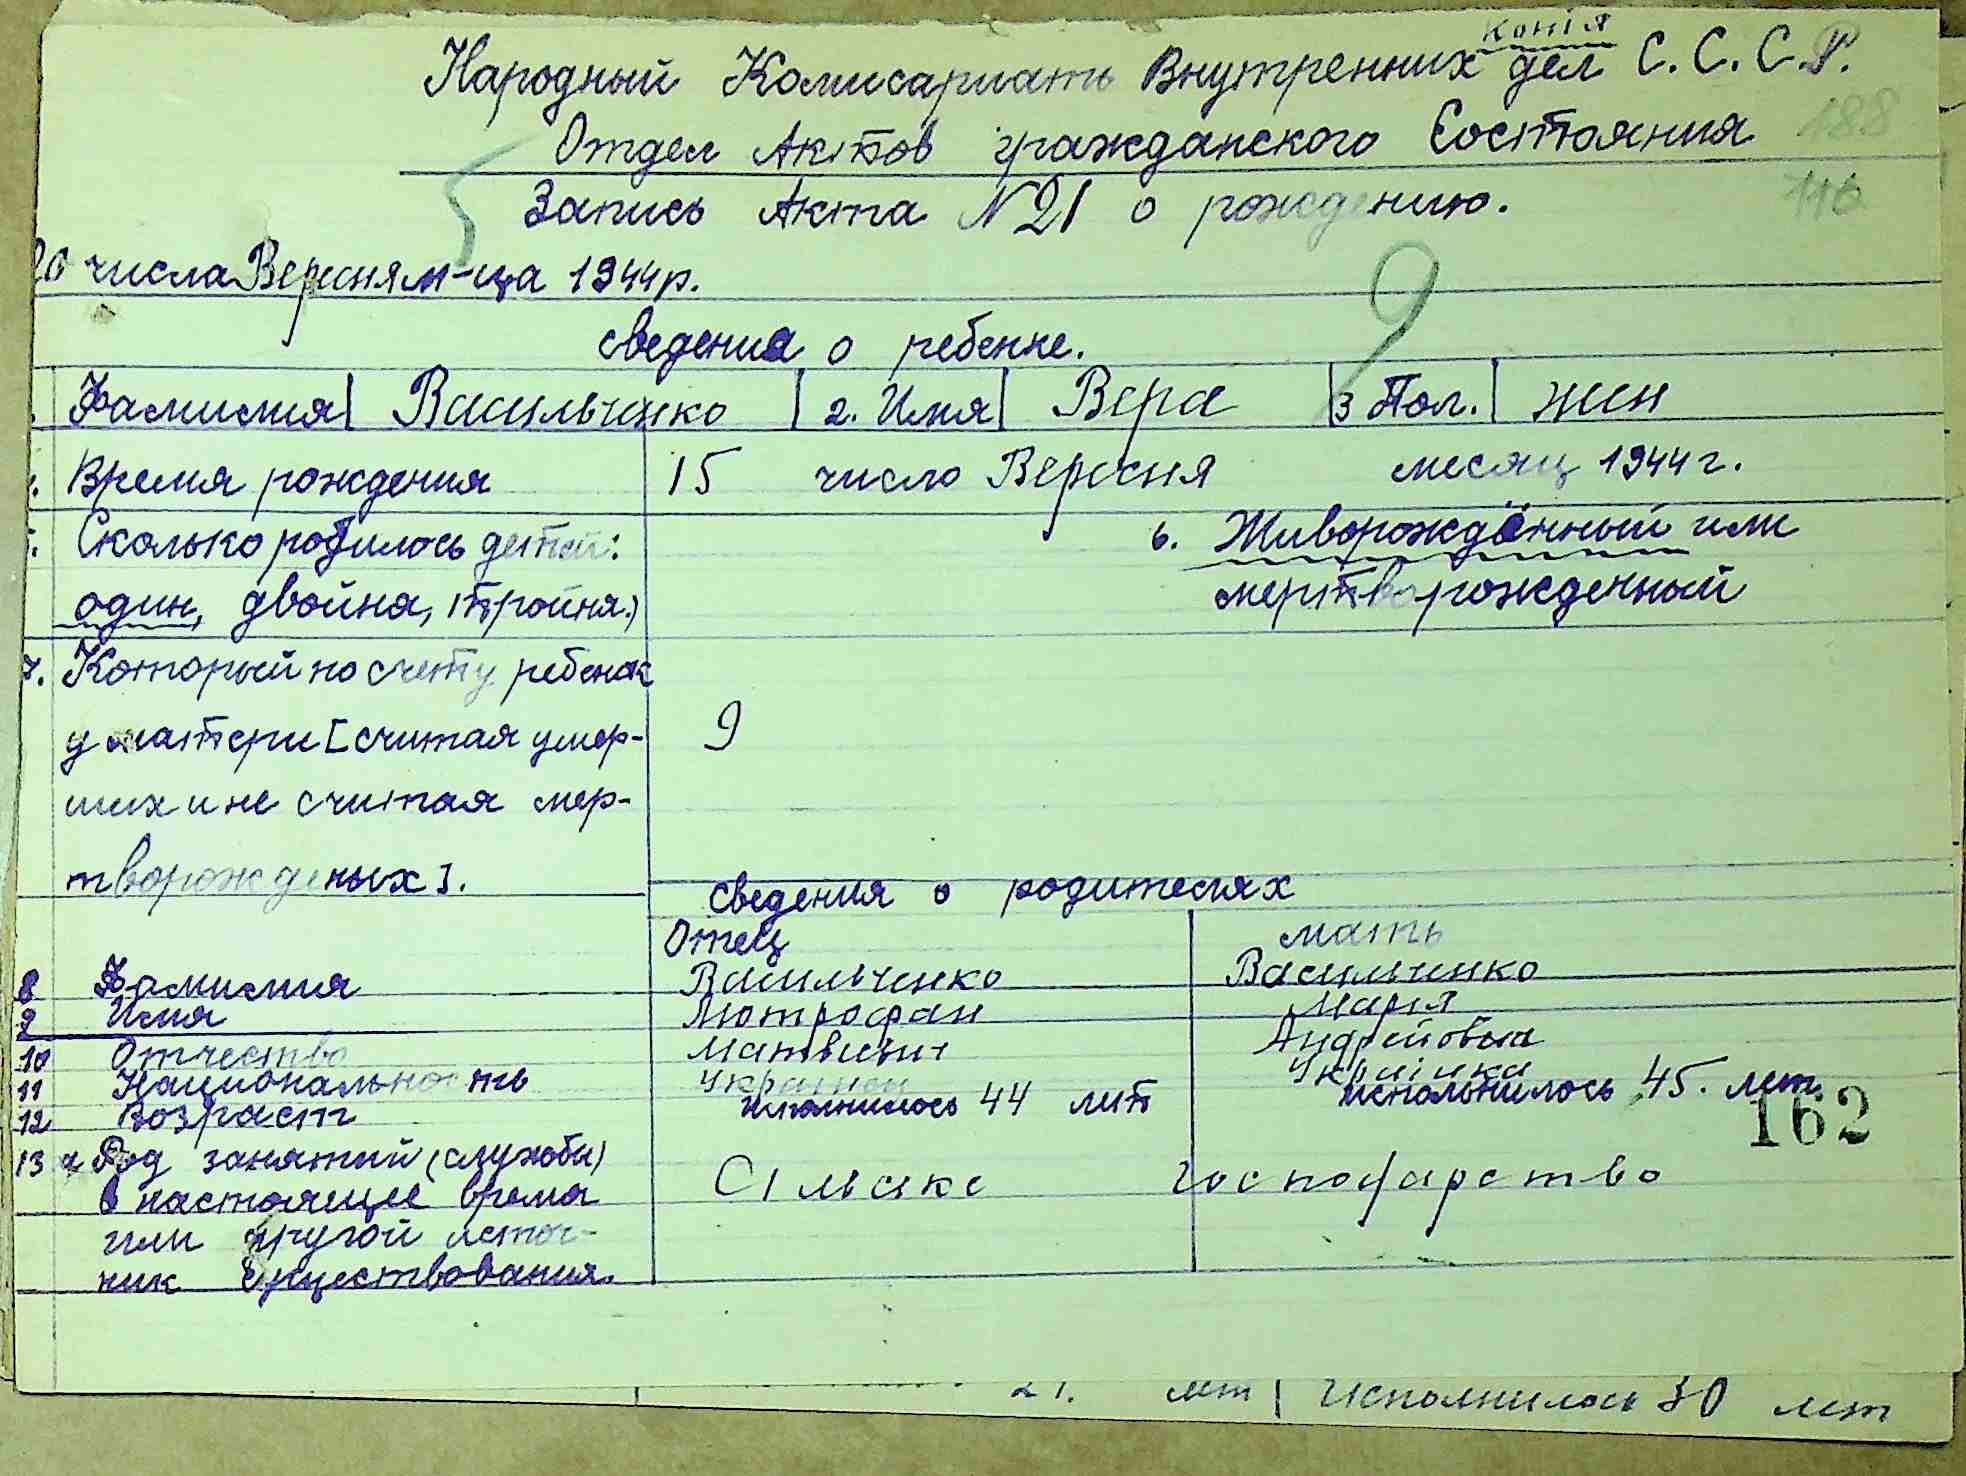 копія
Народный Комисариать Внутренних дел С.С.С.Р.
188
Отдел Актов гражданского Состояния
116
Запись Акта N 21 о рождению.
20 числа Вересня м-ца 1944р.
9
сведения о ребенке.
Фамилия Васильченко 2. Имя Вера 3 Пол. жен
Время рождения 15 число Вересня месяц 1944 г.
Сколько родилось детей: 6. Живорождённый или
один, двойна, тройня.) мертворожденный
7. Который по счету ребенок
у матери [считая умер- 9
ших и не считая мер-
творожденых].
сведения о родителях
Отец мать
8 Фамилия Васильченко Васильченко
9 Имя Мютрофан Марія
10 Отчество Матвиевич Андрейовна
11 Национальность Украінец Украінка
12 Возраст исполнилось 44 лит испольнилось 45. лет
162
13 Род занятий (службы)
в настоящее время Сільське господарство
или другой источ-
ник существования.
21. лет Исполнилось 30 лет